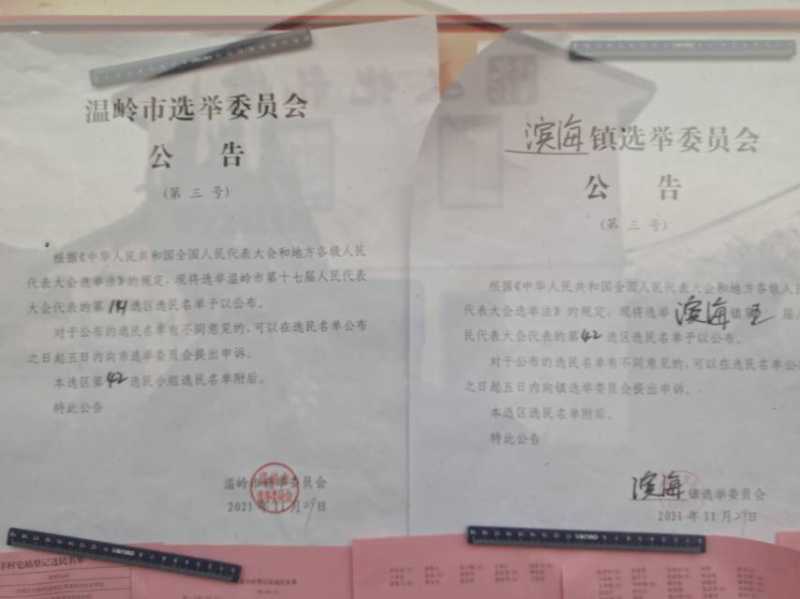 温岭市选举委员会
公 告
（第 三 号）
根据《中华人民共和国全国人民代表大会和地方各级人民
代表大会选举法》的规定，现将选举温岭市第十七届人民代表
大会代表的第141选区选民名单予以公布。
对于公布的选民名单有不同意见的，可以在选民名单公布
之日起五日内向市选举委员会提出申诉。
本选区第42选民小组选民名单附后。
特此公告
温岭市选举委员会
2021年11月29日
滨海镇选举委员会
公 告
（第 三 号）
根据《中华人民共和国全国人民代表大会和地方各级人
代表大会选举法》的规定，现将选举滨海镇 届人
民代表大会代表的第42选区选民名单予以公布。
对于公布的选民名单有不同意见的，可以在选民名单公
之日起五日内向镇选举委员会提出申诉。
本选区选民名单附后。
特此公告
滨海镇选举委员会
2021年11月29日